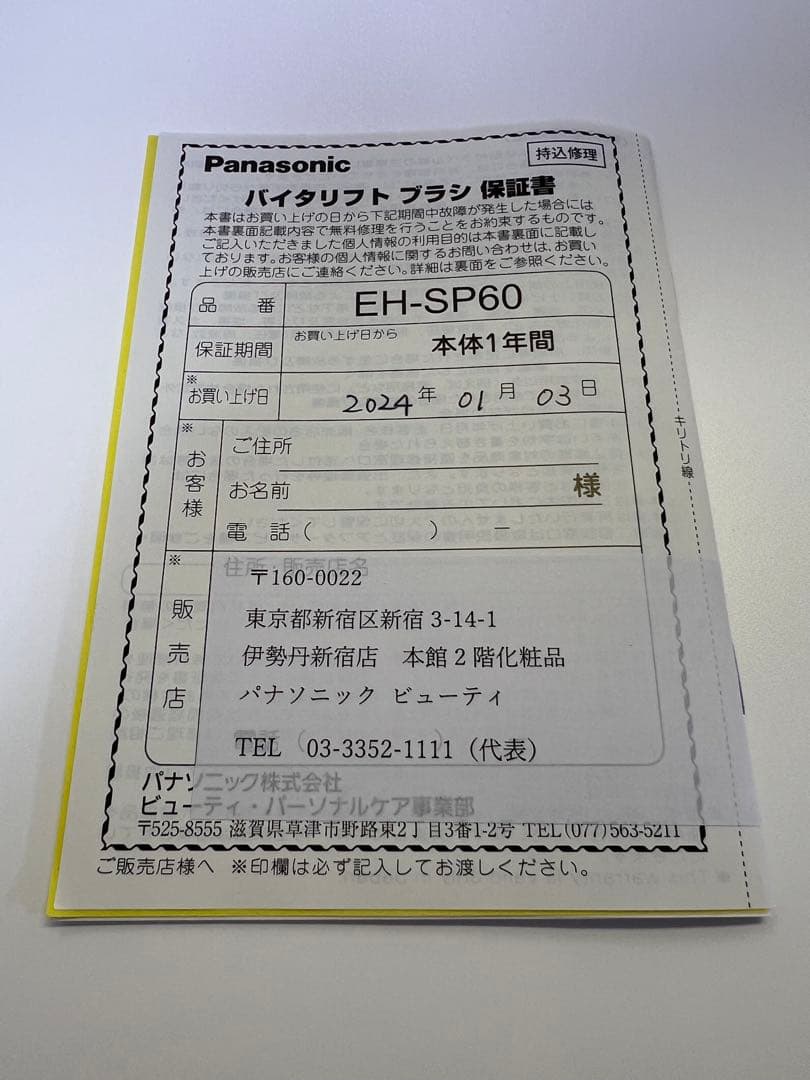 Panasonic
持込修理
バイタリフト ブラシ 保証書
本書はお買い上げの日から下記期間中故障が発生した場合には
本書裏面記載内容で無料修理を行うことをお約束するものです。
ご記入いただきました個人情報の利用目的は本書裏面に記載し
ております。お客様の個人情報に関するお問い合わせは、お買い
上げの販売店にご連絡ください。詳細は裏面をご参照ください。
品 番 EH-SP60
保証期間 お買い上げ日から 本体1年間
※お買い上げ日 2024年 01月 03日
※お客様 ご住所
お名前 様
電 話( )
※販売店 住所・販売店名
〒160-0022
東京都新宿区新宿 3-14-1
伊勢丹新宿店 本館2階化粧品
パナソニック ビューティ
電話(
TEL 03-3352-1111(代表)
パナソニック株式会社
ビューティ・パーソナルケア事業部
〒525-8555 滋賀県草津市野路東2丁目3番1-2号 TEL(077)563-5211
ご販売店様へ ※印欄は必ず記入してお渡しください。
キリトリ線